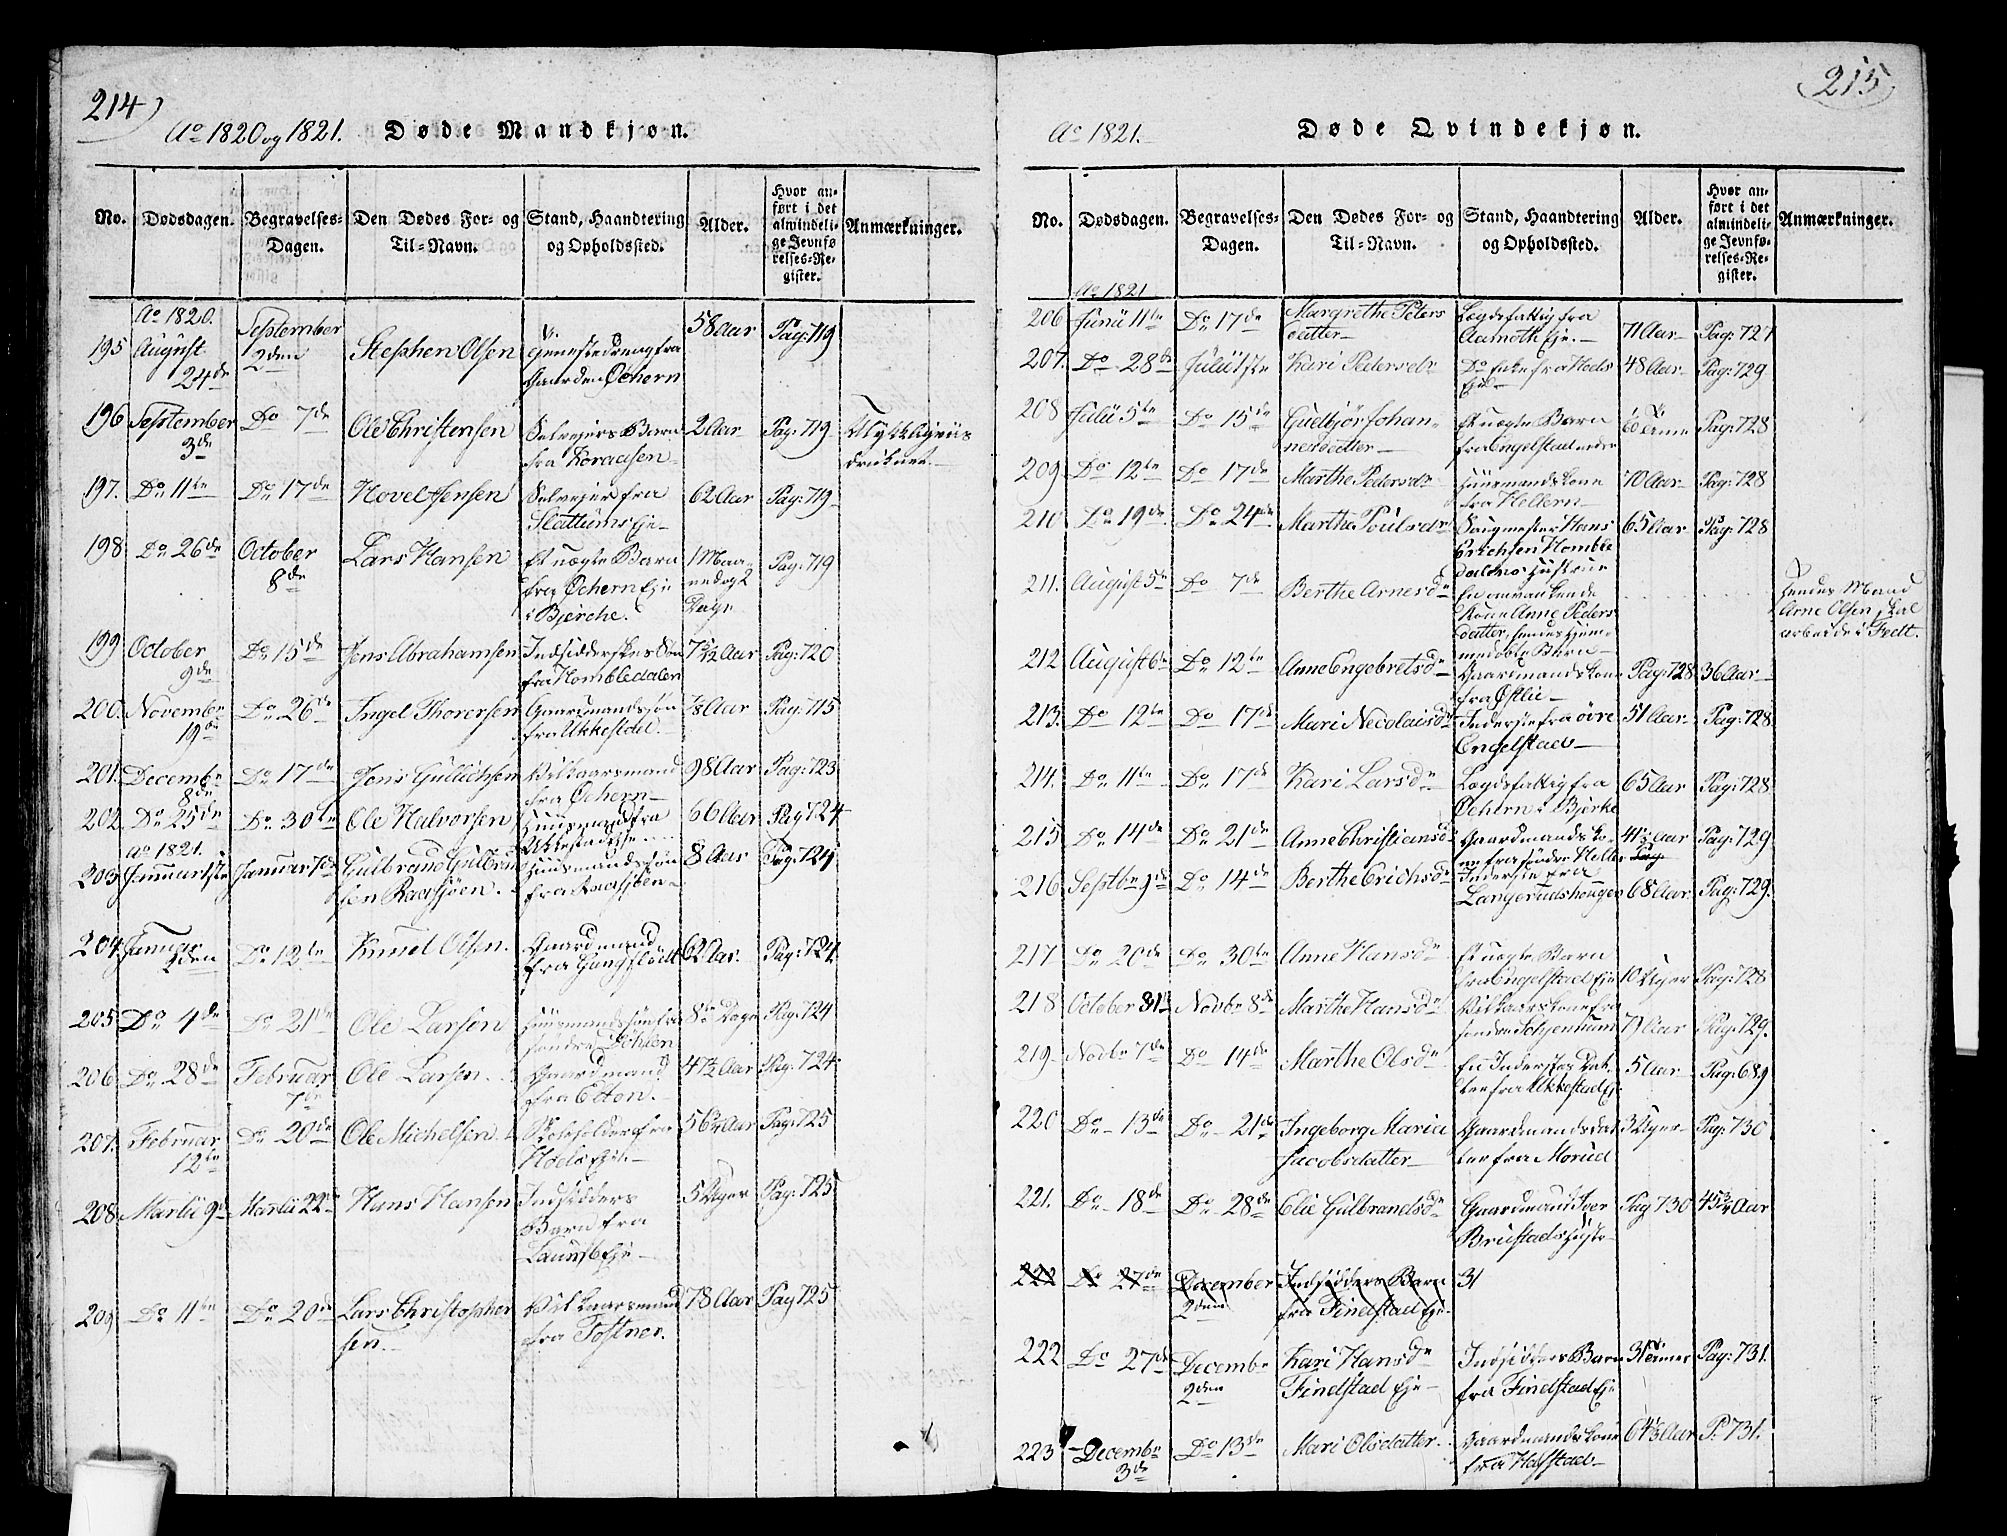 214)
Ao 1820 og 1821. Døde Mandkjøn.
No. Dødsdagen. Begravelses-Dagen. Den Dødes For- og Til-Navn. Stand, Haandtering og Opholdssted. Alder. Hvor anført i det almindelige Jevnførelses-Register. Anmærkninger.
Ao 1820.
195 August 24de September 2den Stephen Olsen fra Gaarden Ochern 58 Aar Pag: 719
196 September 3de Do 7de Ole Christensen Selvejers Barn fra Koraasen 2 Aar Pag: 719 druknet.
197. Do 11te Do 17de Hovel Jensen Selvejer fra Slattums Eje 62 Aar Pag: 719
198 Do 26de October 8de Lars Hansen Et uægte Barn fra Ochern Eje i Bjerche. 1 Maaned og 2 Dage Pag: 719
199 October 9de Do 15de Jens Abrahamsen Indsidderskes Søn fra Hombledalen 7 1/2 Aar Pag: 720
200. Novembr 19de Do 26de Ingel Thorersen Gaardmands søn fra Ukkestad. 7/8 Aar Pag: 715
201. Decembr 8de Do 17de Jens Gullichsen Vilkaarsmand fra Ochern 98 Aar Pag: 723
202. Do 25de Do 30te Ole Halvorsen Huusmand fra Ukkestad Eje 66 Aar Pag 724
Ao 1821.
203 Januar 1ste Januar 7de Gulbrand Gulbrandsen Raasjøen. Huusmands søn fra Raasjøen 8 Aar Pag: 724
204. Januar 2den Do 12te Knud Olsen. Gaardmand fra Gungflødt 62 Aar. Pag: 724
205 Do 4de Do 21de Ole Larsen Huusmands søn fra søndre Døhlen 8te Dage Pag: 724
206. Do 28de Februar 7de Ole Larsen. Gaardmand fra Elton. 47 1/2 Aar Pag: 724
207. Februar 12te Do 20de Ole Michelsen Skoleholder fra Hoels Eje. 56 3/4 Aar Pag: 725
208 Martii 9de Martii 22de Hans Hansen Indsidders Barn fra Eje 5 Uger Pag: 725
209 Do 11te Do 20de Lars Christophersen. Vilkaarsmand fra Tostner. 78 Aar Pag 725
215
Ao 1821. Døde Qvindekjøn.
No. Dødsdagen. Begravelses-Dagen. Den Dødes For- og Til-Navn. Stand, Haandtering og Opholdssted. Alder. Hvor anført i det almindelige Jevnførelses-Register. Anmærkninger.
Ao 1821
206 Junii 11te Do 17de Margrethe Petersdatter Legdsfattig fra Aamoth Eje. 71 Aar Pag: 727
207. Do 28de Julii 1ste Kari Pedersdr Do Enke fra Hoels Eje 48 Aar Pag: 729
208 Julii 5te Do 15de Gudbjør Johannesdatter Et uægte Barn fra Engelstad Pag: 728
209 Do 12te Do 17de Marthe Pedersdr Huusmandskone fra Hellern 70 Aar Pag: 728
210 Do 19de Do 24de Martha Poulsdr Hans Erichsen Hombledalens Hustrue 65 Aar Pag: 728
211. August 5te Do 7de Berthe Arnesdr En omvankende Kone Anne Pedersdatter, hendes hjemmedøbte Barn Hendes Mand Arne Olsen skal arbeide i Fredt.
212 August 6te Do 12te Anne Engebretsdr Gaardmandskone fra Østlie Pag: 728 36 Aar
213. Do 12te Do 17de Mari Necolaisdr Inderste fra øvre Engelstad 51 Aar Pag: 728
214. Do 11te Do 17de Kari Larsdr Legdsfattig fra Ochern i Bjerke 65 Aar Pag: 728
215 Do 14de Do 21de Anne Christiansdr Gaardmandskone fra søndre Heller 41 1/2 Aar Pag: 729
216 Septbr 9de Do 14de Berthe Erichsdr Inderste fra Langerudshougen 68 Aar Pag: 729.
217 Do 20de Do 30te Anne Hansdr Et uægte Barn fra Engelstad Eje 10 Uger Pag: 728
218 October 31te Novbr 8de Marthe Hansdr Vilkaarskone fra søndre Schjennum 71 Aar Pag: 729.
219 Novbr 7de Do 14de Marthe Olsdr En Inderstes Datter fra Ukkestad Ej 5 Aar Pag: 689
220 Do 13de Do 21de Ingeborg Maria Jacobsdatter Gaardmands datter fra Morud 3 Uger Pag: 730
221. Do 18de Do 28de Elie Gulbrandsdr Gaardmand Iver Brustads Hustr. Pag 730 45 3/4 Aar
222 Do 27de December 2den Indsidders Barn fra Findstad Eje. 31
222 Do 27de Decembr 2den Kari Hansdr Findstad Eje Indsidders Barn fra Findstad Eje Pag: 731.
223 Decembr 3de Do 13de Mari Olsdatter. Gaardmandskone fra Halstad Aar P. 731.